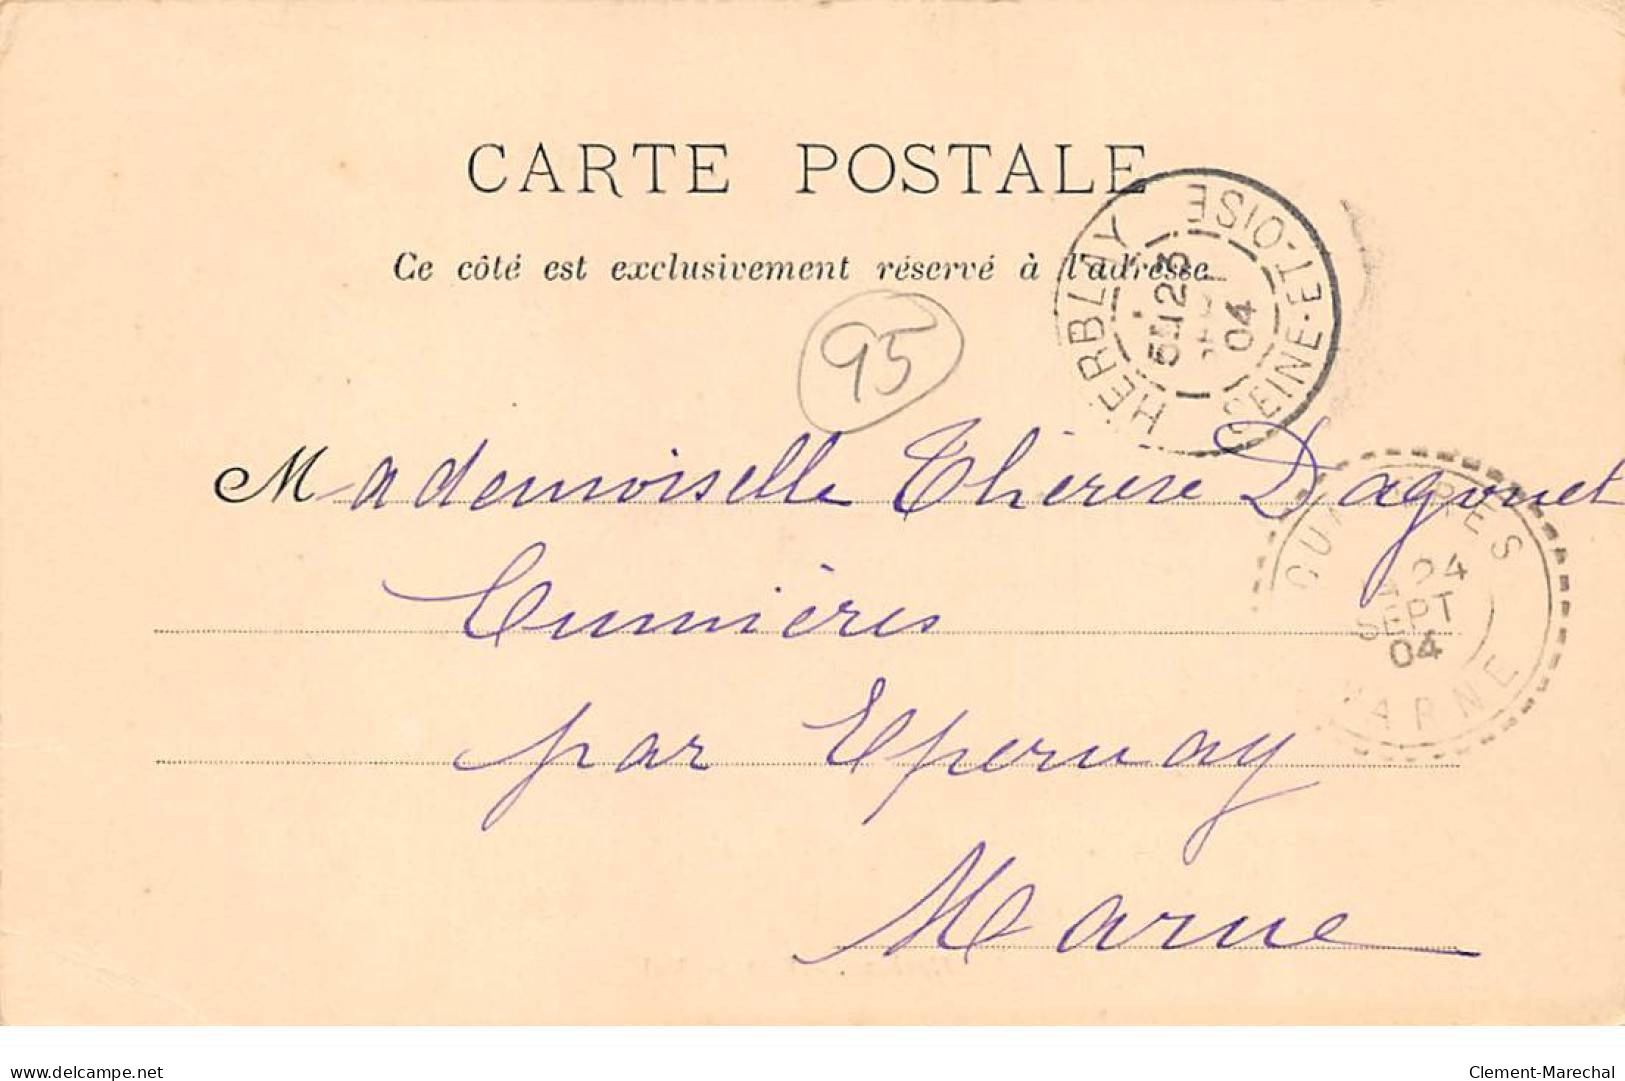 CARTE POSTALE
Ce côté est exclusivement réservé à l'adresse
HERBLAY SEINE-ET-OISE
23
04
95
Mademoiselle Thérèse Dagonet
Cumières
par Epernay
Marne
24
SEPT
04
MARNE
delcampe.net
Clement-Marechal